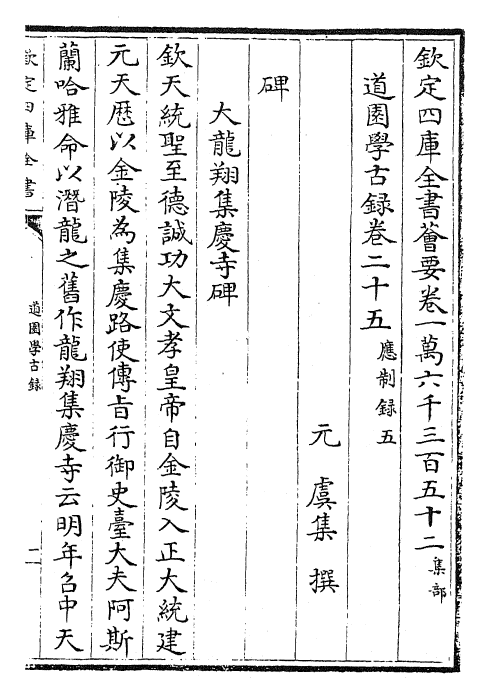 欽定四庫全書薈要卷一萬六千三百五十二 集部
道園學古録卷二十五 應制録五
元 虞集 撰
碑
大龍翔集慶寺碑
欽天統聖至德誠功大文孝皇帝自金陵入正大統建
元天歴以金陵為集慶路使傳旨行御史臺大夫阿斯
蘭哈雅命以潛龍之舊作龍翔集慶寺云明年召中天
欽定四庫全書
道園學古録